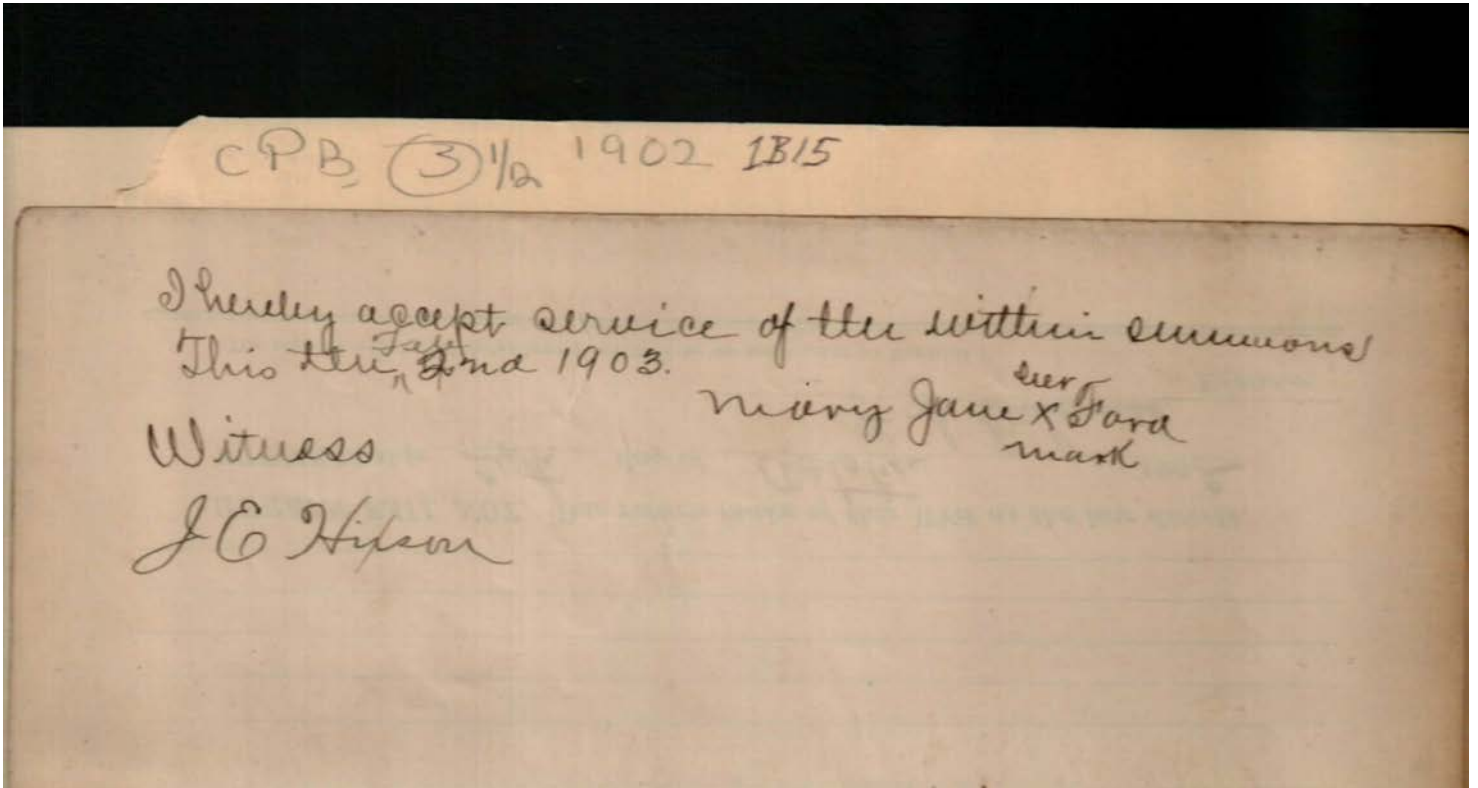 CPB 3 1/2 1902 1B15
I hereby accept service of the within summons
This the 2nd 1903.
her
Mary Jane X Ford
mark
Witness
J E Hixson